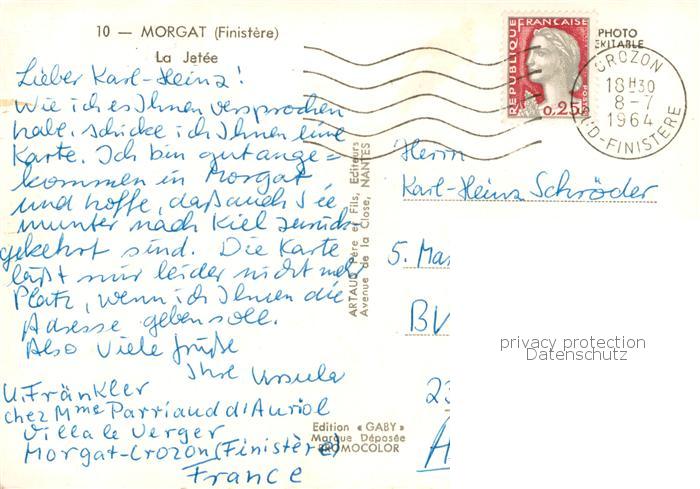 10 — MORGAT (Finistère)
La Jetée
Lieber Karl-Heinz!
Wie ich es Ihnen versprochen
habe, schicke ich Ihnen eine
Karte. Ich bin gut ange=
kommen in Morgat
und hoffe, daß auch Sie
munter nach Kiel zurück-
gekehrt sind. Die Karte
läßt nur leider nicht mehr
Platz, wenn ich Ihnen die
Adresse geben soll.
Also Viele Grüße
Ihre Ursula
U. Fränkler
chez Mme Parriaud d'Auriol
Villa le Verger
Morgat-Crozon (Finistère)
France
ARTAUD Père et Fils, Editeurs
Avenue de la Close, NANTES
Edition « GABY »
Marque Déposée
PROMOCOLOR
REPUBLIQUE FRANÇAISE
POSTES
0,25
PHOTO
VERITABLE
CROZON
18H30
8-7
1964
ND-FINISTERE
Herrn
Karl-Heinz Schröder
5. Mas
BV
23
privacy protection
Datenschutz